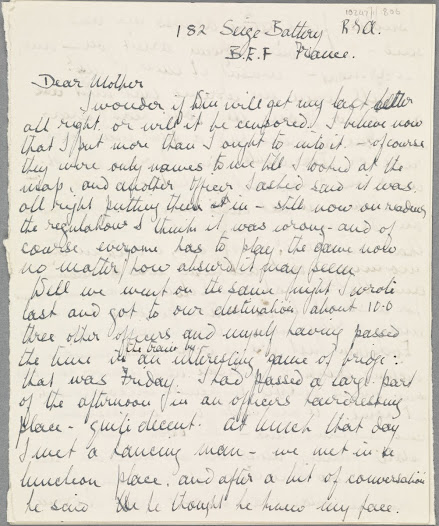 182 Siege Battery R.G.A.
B.E.F France.
Dear Mother
I wonder if Kim will get my last letter
all right or will it be censored. I believe now
that I put more than I ought to into it – of course
they were only names to me till I looked at the
map, and another officer I asked said it was
all right putting them in – still now on reading
the regulations I think it was wrong – and of
course everyone has to play the game now
no matter how absurd it may seem
Well we went on the same night I wrote
last and got to our destination about 10-0
three other officers and myself having passed
the train by
the time in an interesting game of bridge:
that was Friday. I had passed a large part
of the afternoon in an officers
place – quite decent. At lunch that day
I met a dancing man – we met in a
luncheon place, and after a bit of conversation
he said he thought he knew my face.